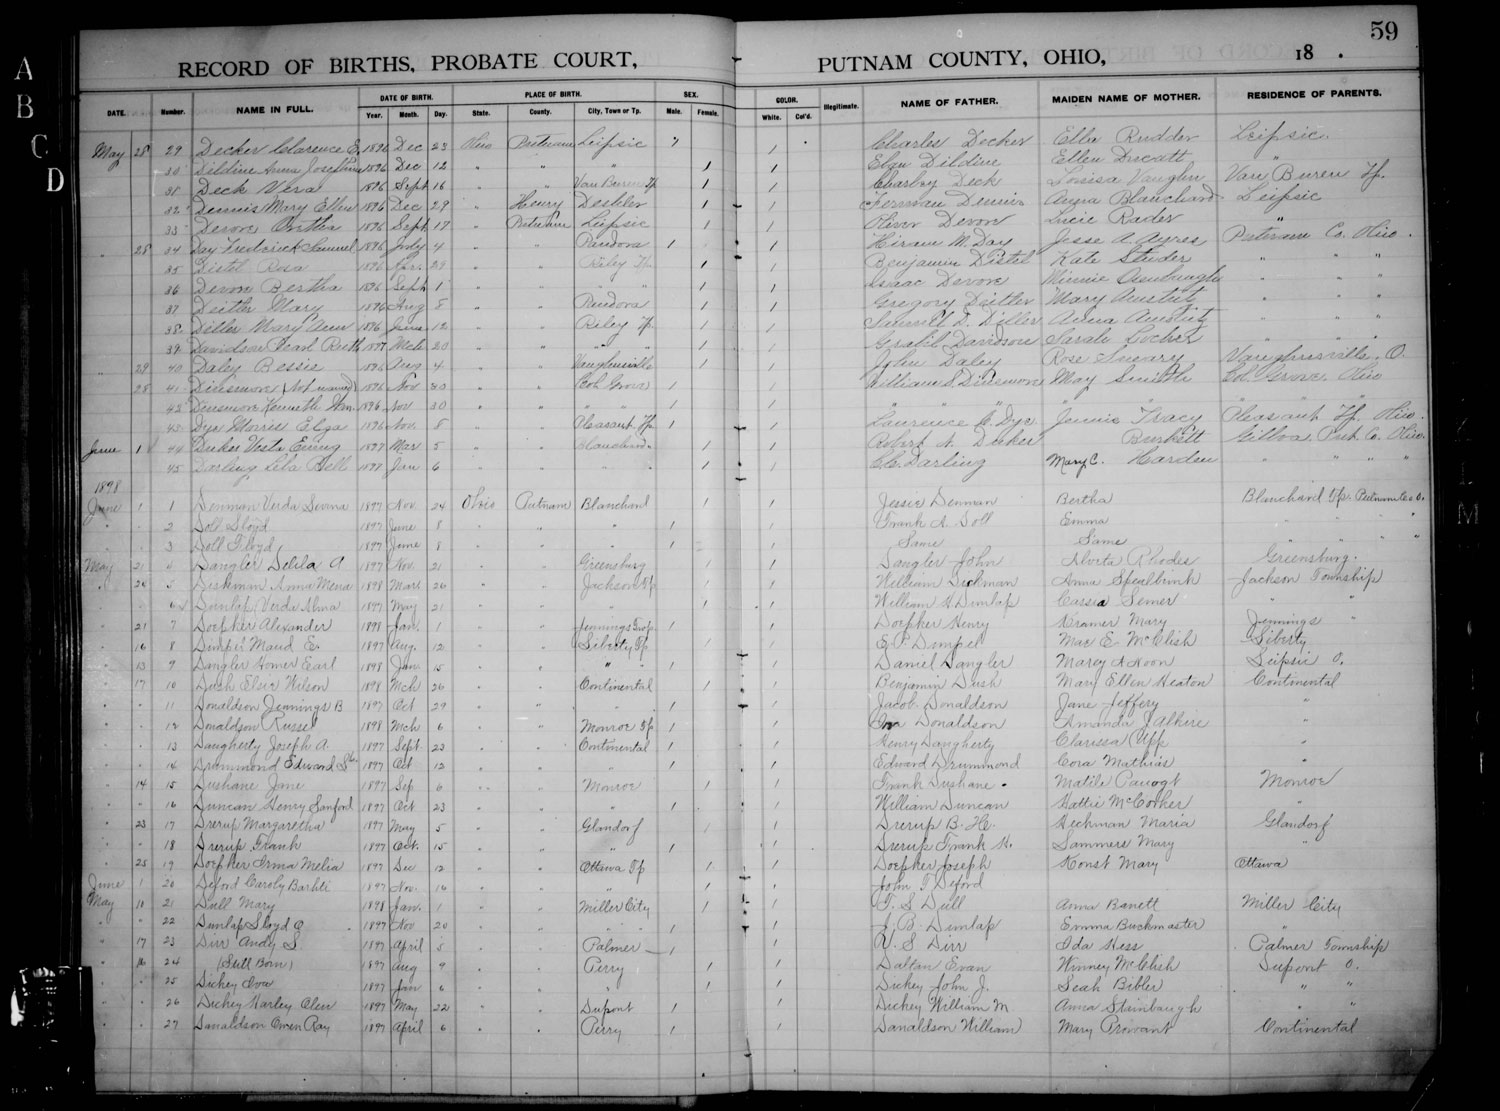 59
RECORD OF BIRTHS, PROBATE COURT, PUTNAM COUNTY, OHIO, 18 .
A
B
C
D
DATE. Number. NAME IN FULL. DATE OF BIRTH. Year. Month. Day. PLACE OF BIRTH. State. County. City, Town or Tp. SEX. Male. Female. COLOR. White. Col'd. Illegitimate. NAME OF FATHER. MAIDEN NAME OF MOTHER. RESIDENCE OF PARENTS.
May 28 29 Decker Clarence E. 1896 Dec 23 Ohio Putnam Leipsic 1 1 Charles Decker Ella Rudder Leipsic
30 Dildine Anna Josephine 1896 Dec 12 " " " 1 1 Dildine Ellen Ducatt "
31 Deck Vera 1896 Sept 16 " " Van Buren Tp 1 1 Charley Deck Louisa Vaughn Van Buren Tp.
32 Dennis Mary Ellen 1896 Dec 29 " Henry Deshler 1 1 Herman Dennis Anna Blanchard Leipsic
33 Devore 1896 Sept 17 " Putnam Leipsic 1 1 Oliver Devore Lucie Rader "
" 28 34 Day Fredrick Samuel 1896 July 4 " " Pandora 1 1 Hiram M. Day Jesse A. Ayres Putnam Co. Ohio.
35 Distel Rosa 1896 29 " " Riley Tp. 1 1 Benjamin Distel Kate Studer " " "
36 Devore Bertha 1896 Sept 1 " " " " 1 1 Isaac Devore Minnie " " "
37 Mary 1896 Aug 8 " " Pandora 1 1 Gregory Mary " " "
38 Diller Mary Ann 1896 June 12 " " Riley Tp. 1 1 Samuel D. Diller Anna " " "
39 Davidson Pearl Ruth 1897 Mch 20 " " " " 1 1 Davidson Sarah Locher " " "
" 29 40 Daley Bessie 1896 Aug 4 " " Vaughnsville 1 1 John Daley Rose Vaughnsville, O.
" 28 41 Dinsmore (Not named) 1896 Nov 30 " " Col. Grove 1 1 William S. Dinsmore May Smith Col. Grove, Ohio
42 Dinsmore Kenneth Wm. 1896 Nov 30 " " " " 1 1 " " " " " "
43 Dye Morris Elza 1896 Nov. 8 " " Pleasant Tp. 1 1 Laurence C. Dye Jennie Tracy Pleasant Tp. Ohio.
June 1 44 Duker Vesta 1897 Mar 5 " " Blanchard 1 1 Robert A. Duker Burkett Gilboa, Put. Co. Ohio.
45 Darling Lela Bell 1897 Jan 6 " " " 1 1 Darling Mary C. Harden " " " "
1898
June 1 1 Denman Verda 1897 Nov. 24 Ohio Putnam Blanchard 1 1 Jessie Denman Bertha Blanchard Tp. Putnam Co. O.
" " 2 Doll Lloyd 1897 June 8 " " " 1 1 Frank A. Doll Emma " " " "
" " 3 Doll Floyd 1897 June 8 " " " 1 1 Same Same " " " "
May 21 4 Dangler Delila A 1897 Nov. 21 " " Greensburg 1 1 Dangler John Alvita Rhodes Greensburg.
" 26 5 Anna Mena 1898 Mar 26 " " Jackson Tp 1 1 William Anna Jackson Township
" " 6 Dunlap Verda Alma 1897 May 21 " " " 1 1 William H Dunlap Cassia Semer " "
" 21 7 Doepker Alexander 1898 Jan. 1 " " Jennings Twp 1 1 Doepker Henry Kramer Mary Jennings "
" 16 8 Maud E. 1897 Aug. 12 " " Liberty Tp 1 1 E. P. Mae E. McClish Liberty
" 13 9 Dangler Homer Earl 1898 Jan. 15 " " " " 1 1 Daniel Dangler Marcy A Koon Leipsic O.
" 17 10 Dush Elsie Wilson 1898 Mch 26 " " Continental 1 1 Benjamin Dush Mary Ellen Heaton Continental
" " 11 Donaldson Jennings B 1897 Oct 29 " " " 1 1 Jacob Donaldson Jane Jeffery "
" " 12 Donaldson Russel 1898 Mch 6 " " Monroe Tp 1 1 Donaldson Amanda J Alkire "
" " 13 Daugherty Joseph A. 1897 Sept. 23 " " Continental 1 1 Henry Daugherty Clarissa Upp "
" " 14 Drummond Edward 1897 Oct 12 " " " 1 1 Edward Drummond Cora Mathias "
" 14 15 Dushane Jane 1897 Sep 6 " " Monroe 1 1 Frank Dushane Matile Monroe
" " 16 Duncan Henry Sanford 1897 Oct 23 " " " 1 1 William Duncan Hattie "
" 23 17 Drerup Margaretha 1897 May 5 " " Glandorf 1 1 Drerup B. H. Heckman Maria Glandorf
" " 18 Drerup Frank 1897 Oct. 15 " " " 1 1 Drerup Frank H. Sammers Mary "
" 25 19 Doepker Irma Melia 1897 Dec 12 " " Ottawa Tp 1 1 Doepker Joseph Konst Mary Ottawa
June 1 20 Deford Caroly 1897 Nov. 16 " " " 1 1 John T Deford
May 10 21 Dull Mary 1898 Jan. 1 " " Miller City 1 1 T. S Dull Anna Barrett Miller City
" " 22 Dunlap Lloyd O 1897 Nov 20 " " " 1 1 J. B. Dunlap Emma Buckmaster "
" 17 23 Dirr Andy S. 1897 April 5 " " Palmer 1 1 Dirr Ida Hess Palmer Township
" 16 24 (Still Born) 1897 Aug 9 " " Perry 1 1 Daltan Evan Winney McClish Dupont O.
" " 25 Dickey Iva 1897 Jan 6 " " " 1 1 Dickey John J. Leah Bibler " "
" " 26 Dickey Harley Olen 1897 May 22 " " Dupont 1 1 Dickey William M. Anna Stainbaugh " "
" " 27 Danaldson Owen Ray 1897 April 6 " " Perry 1 1 Danaldson William Mary Provant Continental